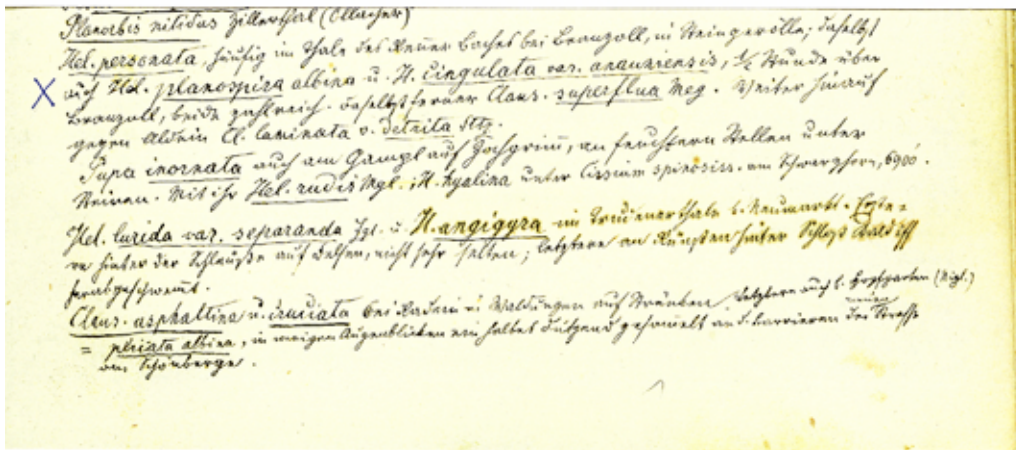 Planorbis nitidus Zillerthal (Ollacher)
Hel. personata, häufig im Thale des Baches bei Branzoll, in Steingerölle; daselbst
auch Hel. planospira albina u. H. cingulata var. anauniensis, ½ Stunde über
Branzoll, beide zahlreich. Daselbst ferner Claus. superflua Meg. Weiter hinauf
gegen Aldein Cl. laminata v. detrita Sttz.
Pupa inornata auch am Gampl auf Jochgrimm, an feuchtern Stellen unter
Steinen. Mit ihr Hel. rudis Mgl.; H. hyalina unter Cirsium spinosiss. am Schwarzhorn, 6900'.
Hel. lurida var. separanda Zgl. u. H. angigyra im Trudenerthale b. Neumarkt. Erste-
re hinter der Schleuße auf Felsen, nicht sehr selten; letztere an hinter Schloss Caldiff
herabgeschwemt.
Claus. asphaltina u. cruciata bei Radein in Waldungen auf Strünken, letztere auch b. Hopfgarten
= plicata albina, in wenigen Augenblicken ein halbes Dutzend gesamelt an d. Barrieren der neuen Strasse
am Schönberge.